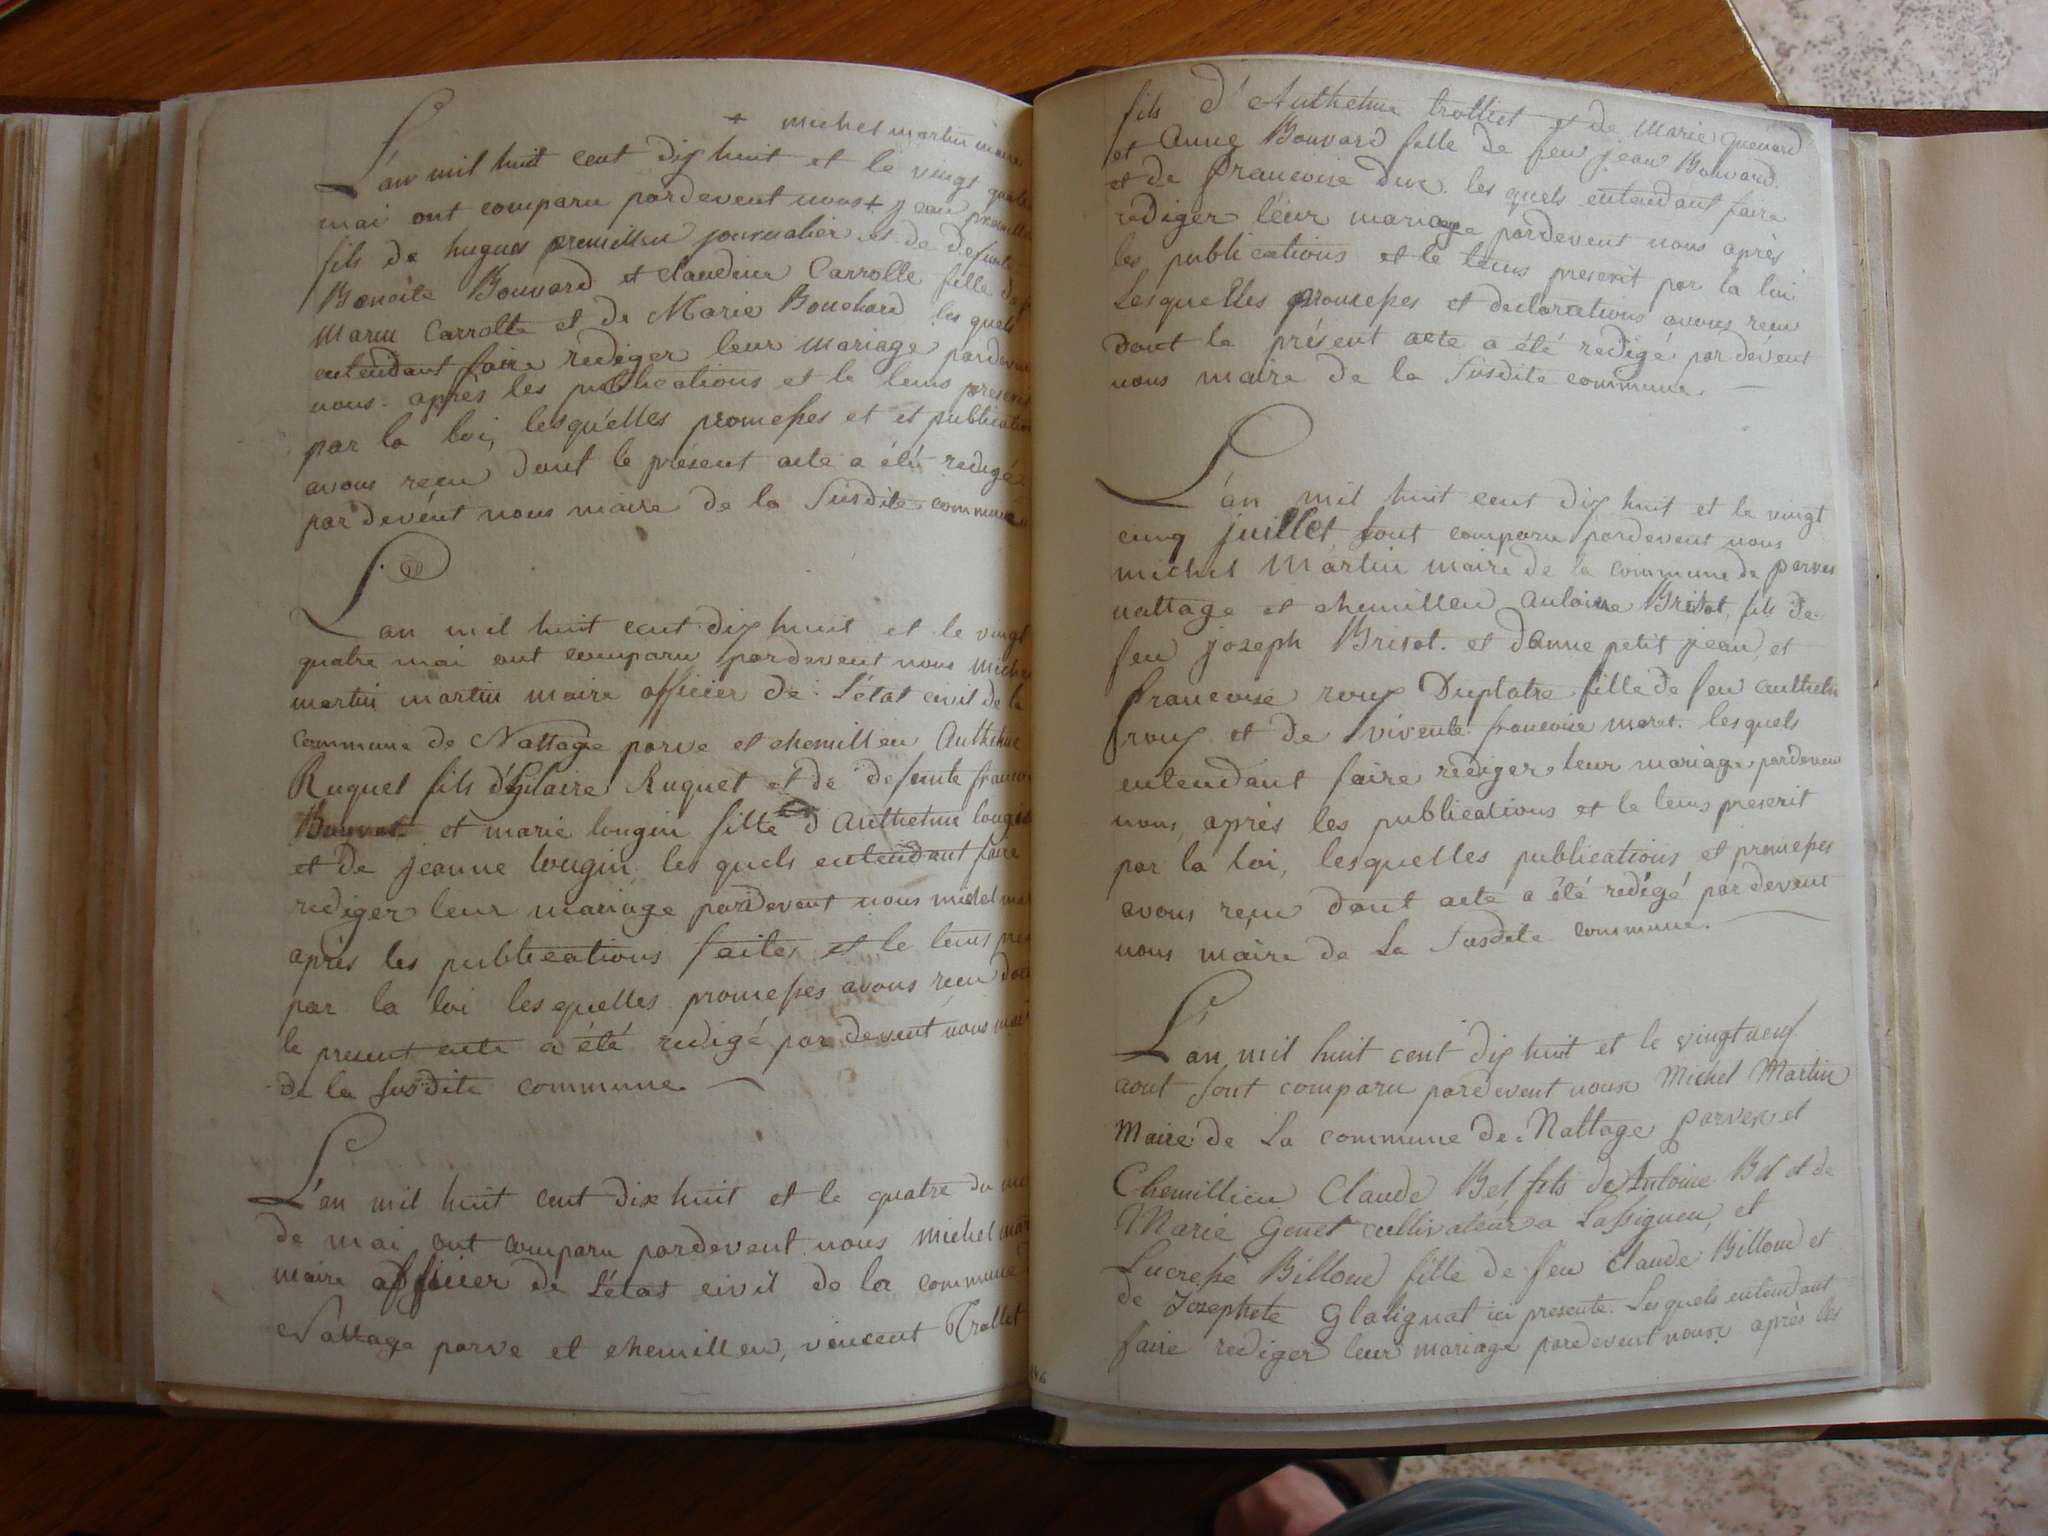 + michel martin maire
L'an mil huit cent dix huit et le vingt quatre
mai ont comparu pardevent nous + jean premillieu
fils de hugues premillieu journalier et de defunte
Benoite Bouvard et claudine Carrotte fille de
Marin Carrotte et de Marie Bouchard les quels
entendant faire rediger leur mariage pardevent
nous après les publications et le tems prescrit
par la loi, lesquélles promesses et et publication
avons recu dont le présent acte a été redigé
pardevént nous maire de la susdite commune
L'an mil huit cent dix huit et le vingt
quatre mai ont comparu pardevent nous miche
martin martin maire officier de l'état civil de la
commune de Nattage parve et chemillieu Anthelme
Ruquet fils d'hilaire Ruquet et de defunte franco
et marie lougin fille d'Anthelme lougin
et de jeanne lougin les quels entendant faire
rediger leur mariage pardevent nous michel ma
après les publications faites et le tems pres
par la loi les quelles promesses avons recu dont
le present acte a été redigé par devent nous mai
de la susdite commune
L'an mil huit cent dix huit et le quatre du m
de mai ont comparu pardevent nous michel mar
maire officier de l'état civil de la commune
Nattage parve et chemillieu, vincent Trollet
fils d'Anthelme trolliet et de marie quenard
et anne Bouvard fille de feu jean Bouvard
et de francoise duc les quels entendant faire
rediger léur mariage pardevent nous après
les publications et le tems prescrit par la loi
Lesquelles promesses et declarations avons recu
dont le présent acte a été redigé par dévent
nous maire de la susdite commune.
L'an mil huit cent dix huit et le vingt
cinq juillet sont comparu pardevent nous
michel Martin maire de la commune de parves
nattage et chemillieu antoine Brisot, fils de
feu joseph Brisot. et d'anne petit jean, et
francoise roux Duplatre fille de feu anthelm
roux et de vivente francoise moret. lesquels
entendant faire rediger leur mariage pardeven
nous, après les publications et le tems préscrit
par la loi, lesquelles publications et promesses
avons reçu dont acte a été redigé par devent
nous maire de La susdite commune.
L'an mil huit cent dix huit et le vingt neuf
aout sont comparu pardevent nous Michel Martin
Maire de La commune de Nattage parves et
Chemillieu Claude Bel fils de Antoine Bel et de
Marie Genet cultivateur a Lassigneu, et
Lucresse Billoud fille de feu Claude Billoud et
de Jozephete Glatignat ici presente. Lesquels entendant
faire rediger leur mariage pardevent nous après les
146